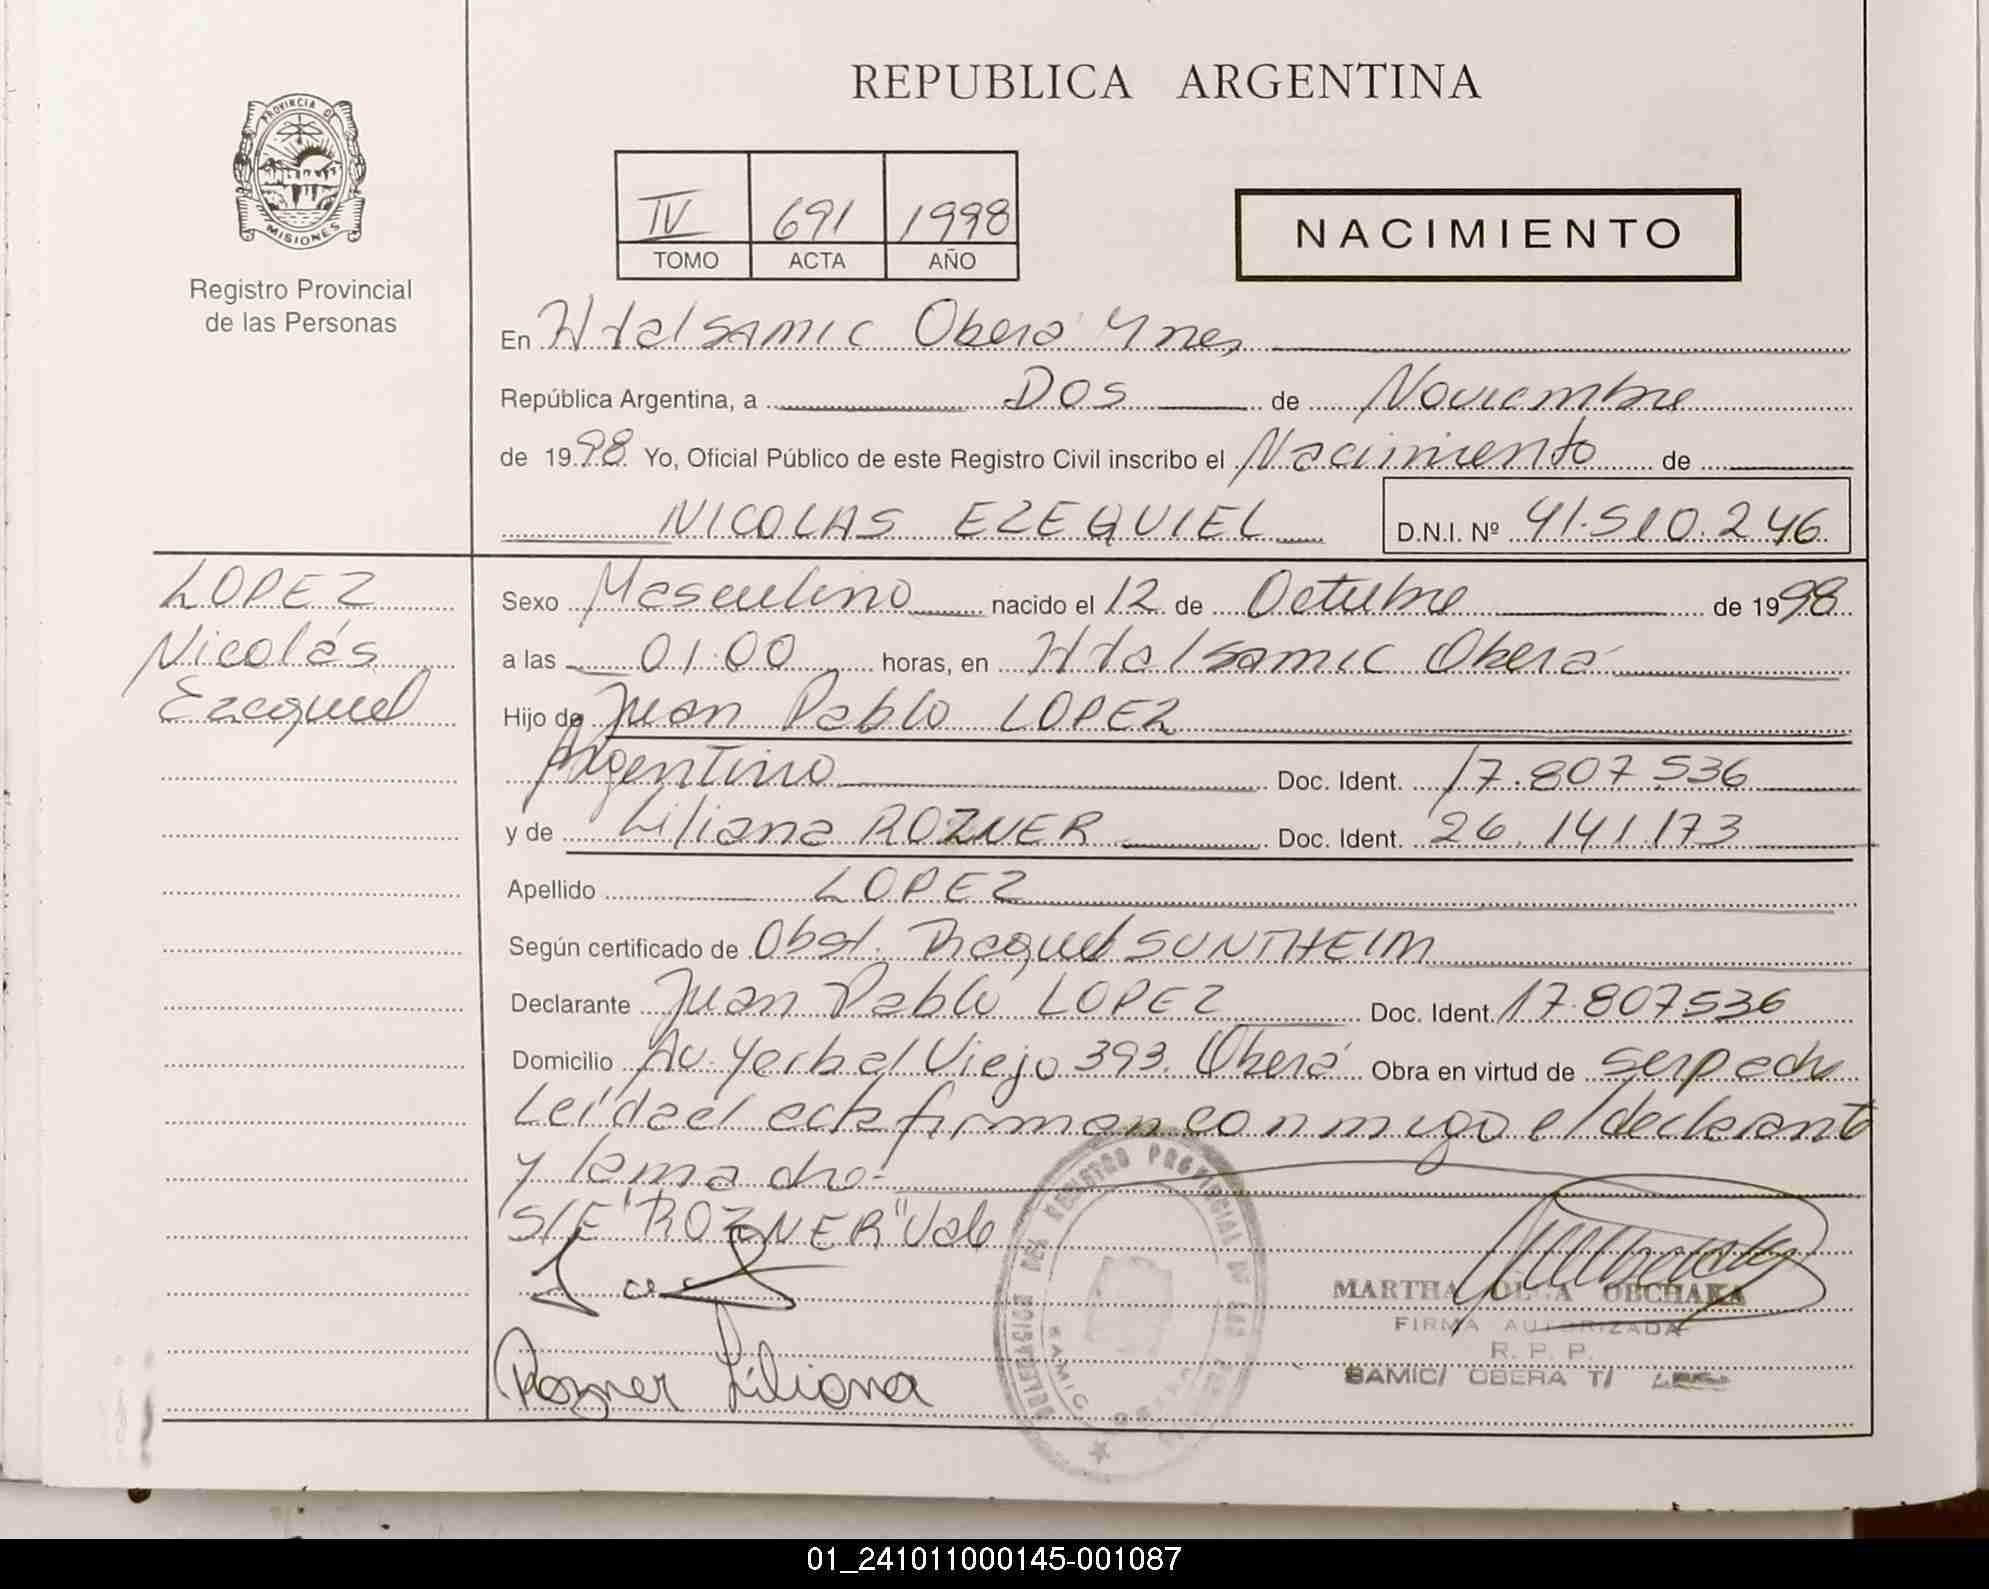 REPUBLICA ARGENTINA
PROVINCIA DE
MISIONES
Registro Provincial
de las Personas
IV 691 1998
TOMO ACTA AÑO
NACIMIENTO
En Htal SAMIC Oberá Mnes
República Argentina, a DOS de Noviembre
de 1998 Yo, Oficial Público de este Registro Civil inscribo el Nacimiento de
NICOLAS EZEQUIEL D.N.I. Nº 41.510.246
LOPEZ
Nicolás
Ezequiel
Sexo Masculino nacido el 12 de Octubre de 1998
a las 01:00 horas, en Htal Samic Oberá
Hijo de Juan Pablo LOPEZ
Argentino Doc. Ident. 17.807.536
y de Liliana ROZNER Doc. Ident. 26.141.173
Apellido LOPEZ
Según certificado de Obst. Raquel SUNTHEIM
Declarante Juan Pablo LOPEZ Doc. Ident. 17.807536
Domicilio Av. Yerbal Viejo 393. Oberá Obra en virtud de ser padre
Leída el acta firman conmigo el declarante
y la madre.
S/E "ROZNER" Vale
Rozner Liliana
DELEGACION DEL REGISTRO PROVINCIAL DE LAS
SAMIC
MARTHA OLGA OBCHAKA
FIRMA AUTORIZADA
R. P. P.
SAMIC/ OBERA T/
01_241011000145-001087